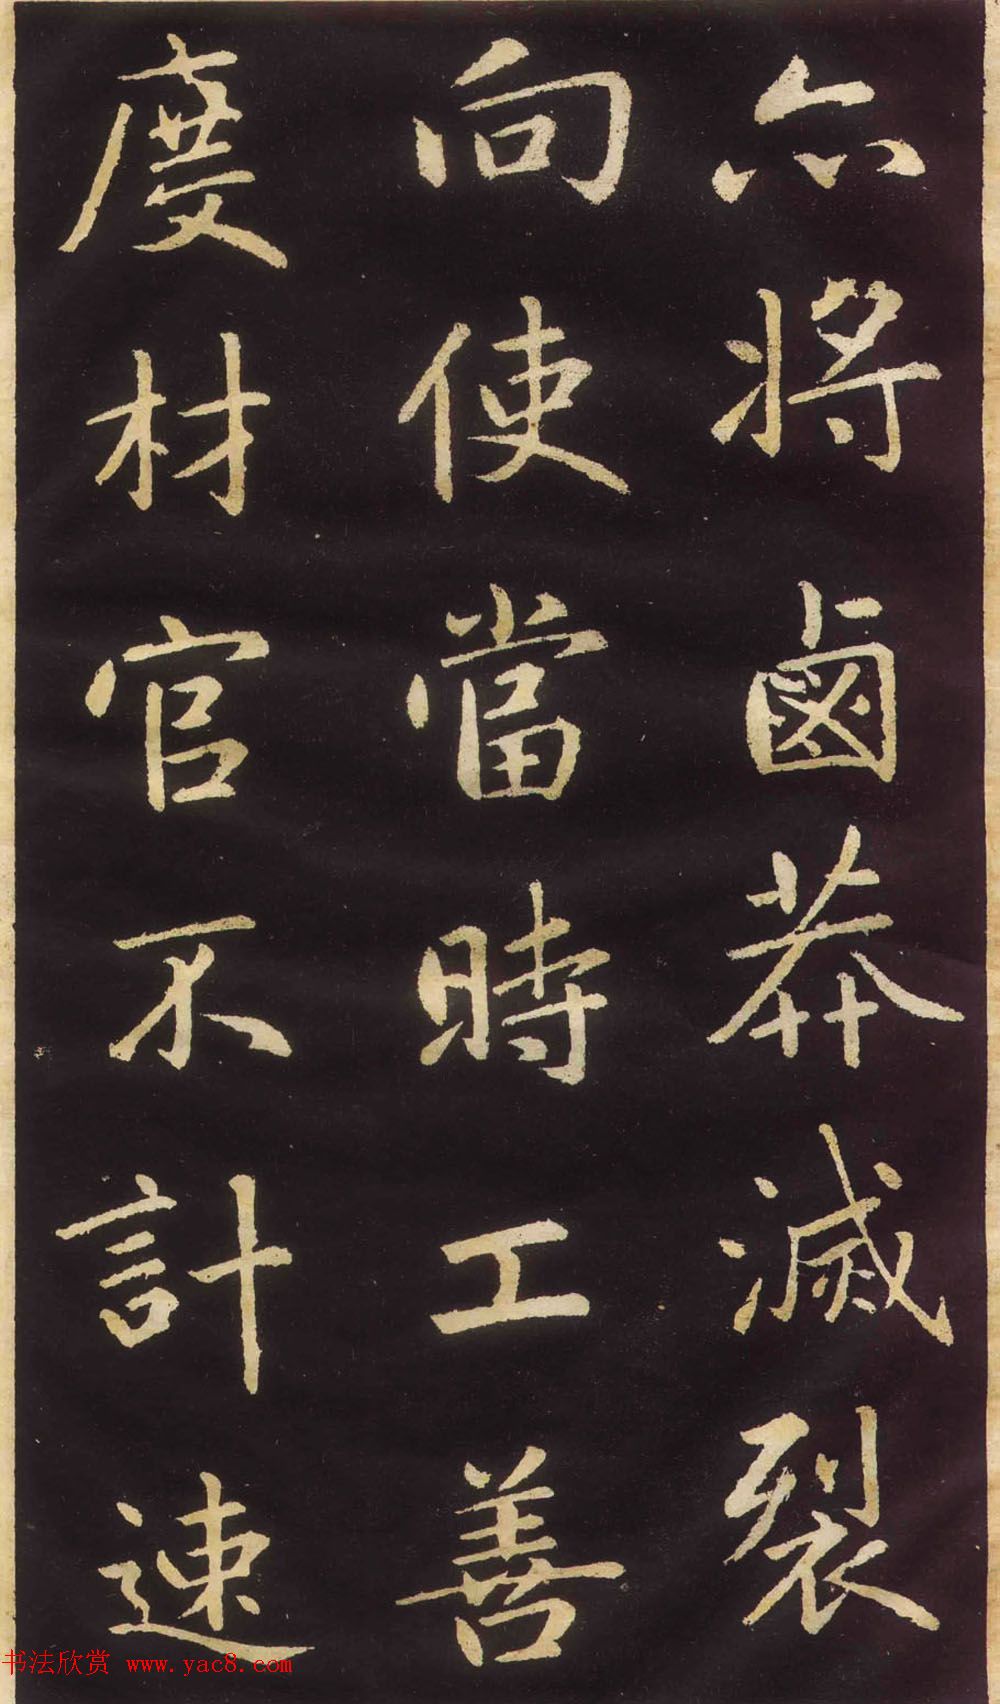 亦將鹵莽滅裂
向使當時工善
度材官不計速
书法欣赏 www.yac8.com